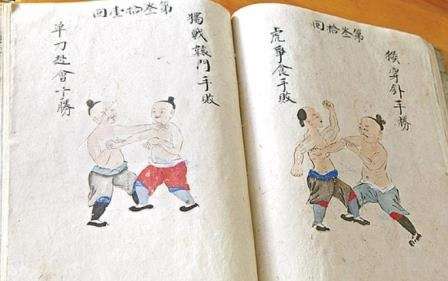 第叁拾回
猴穿針手勝
虎爭食手敗
第叁拾壹回
獨戰轅門手敗
單刀赴會手勝